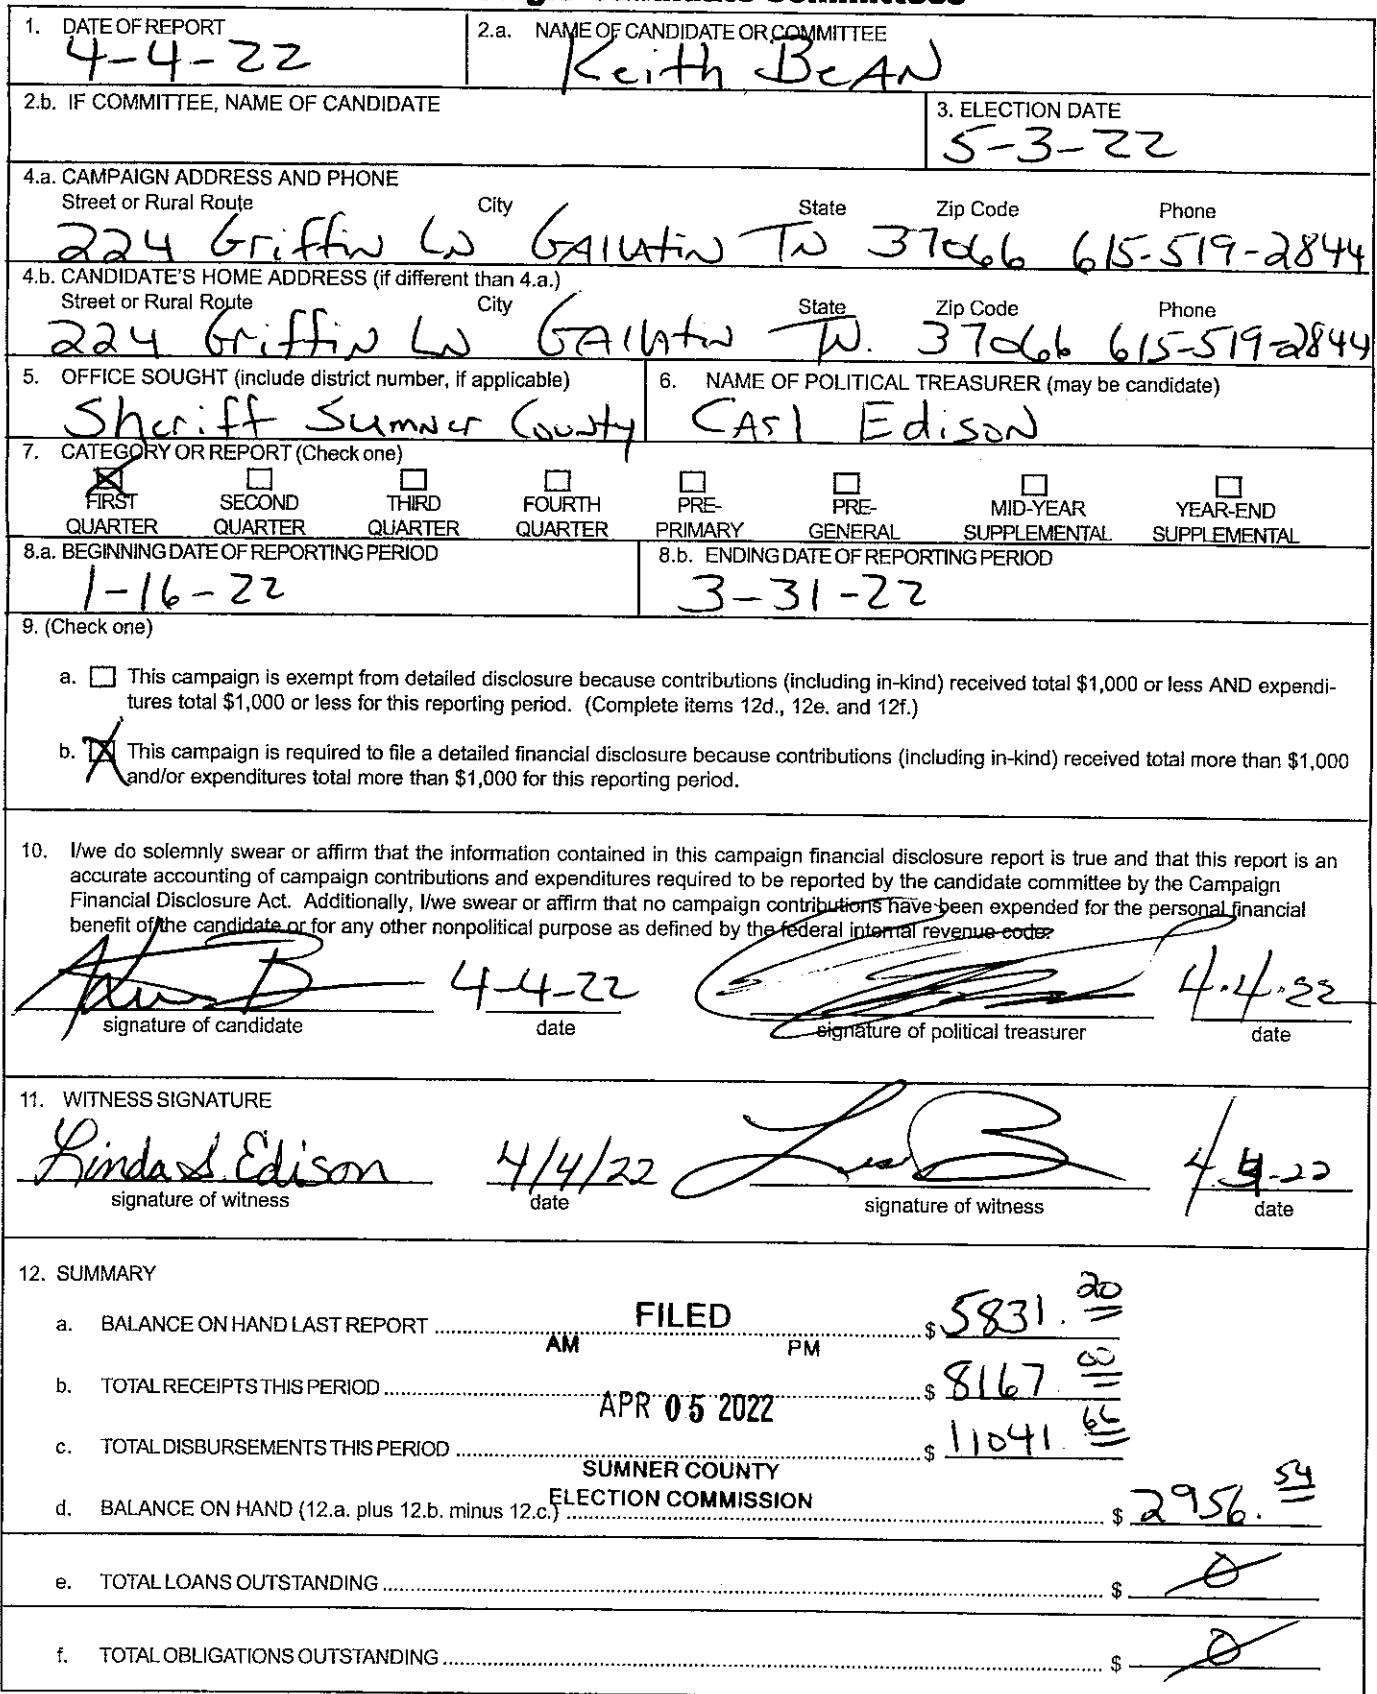 1. DATE OF REPORT
4-4-22
2.a. NAME OF CANDIDATE OR COMMITTEE
Keith BEAN
2.b. IF COMMITTEE, NAME OF CANDIDATE
3. ELECTION DATE
5-3-22
4.a. CAMPAIGN ADDRESS AND PHONE
Street or Rural Route City State Zip Code Phone
224 Griffin LN GAllAtin TN 37066 615-519-2844
4.b. CANDIDATE'S HOME ADDRESS (if different than 4.a.)
Street or Rural Route City State Zip Code Phone
224 Griffin LN GAllAtin TN. 37066 615-519-2844
5. OFFICE SOUGHT (include district number, if applicable)
Sheriff Sumner County
6. NAME OF POLITICAL TREASURER (may be candidate)
CArl Edison
7. CATEGORY OR REPORT (Check one)
FIRST SECOND THIRD FOURTH PRE- PRE- MID-YEAR YEAR-END
QUARTER QUARTER QUARTER QUARTER PRIMARY GENERAL SUPPLEMENTAL SUPPLEMENTAL
8.a. BEGINNING DATE OF REPORTING PERIOD
1-16-22
8.b. ENDING DATE OF REPORTING PERIOD
3-31-22
9. (Check one)
a. This campaign is exempt from detailed disclosure because contributions (including in-kind) received total $1,000 or less AND expendi-
tures total $1,000 or less for this reporting period. (Complete items 12d., 12e. and 12f.)
b. This campaign is required to file a detailed financial disclosure because contributions (including in-kind) received total more than $1,000
and/or expenditures total more than $1,000 for this reporting period.
10. I/we do solemnly swear or affirm that the information contained in this campaign financial disclosure report is true and that this report is an
accurate accounting of campaign contributions and expenditures required to be reported by the candidate committee by the Campaign
Financial Disclosure Act. Additionally, I/we swear or affirm that no campaign contributions have been expended for the personal financial
benefit of the candidate or for any other nonpolitical purpose as defined by the federal internal revenue code.
4-4-22 4.4.22
signature of candidate date signature of political treasurer date
11. WITNESS SIGNATURE
Linda S. Edison 4/4/22 4-22
signature of witness date signature of witness date
12. SUMMARY
a. BALANCE ON HAND LAST REPORT $ 5831.20
FILED
AM PM
b. TOTAL RECEIPTS THIS PERIOD $ 8167 00
APR 05 2022
c. TOTAL DISBURSEMENTS THIS PERIOD $ 11041.66
SUMNER COUNTY
ELECTION COMMISSION
d. BALANCE ON HAND (12.a. plus 12.b. minus 12.c.) $ 2956.54
e. TOTAL LOANS OUTSTANDING $ 0
f. TOTAL OBLIGATIONS OUTSTANDING $ 0